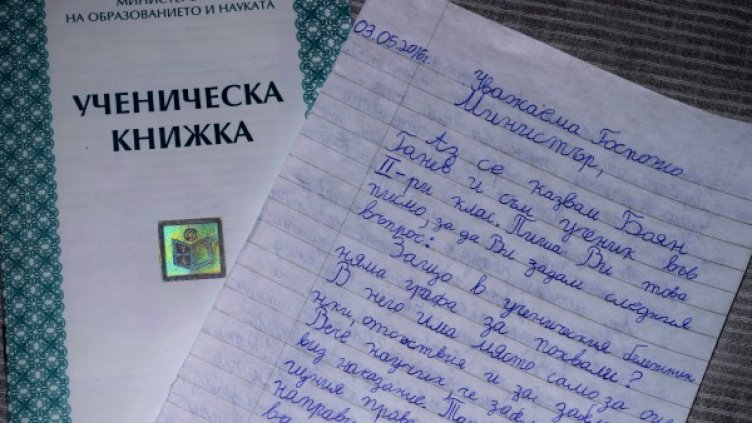 МИНИСТЕРС
НА ОБРАЗОВАНИЕТО И НАУКАТА
УЧЕНИЧЕСКА
КНИЖКА
03.05.2016г.
Уважаема Госпожо
Министър,
Аз се казвам Боян
Ганев и съм ученик във
II-ри клас. Пиша Ви това
писмо, за да Ви задам следния
въпрос:
Защо в ученическия бележник
няма графа за похвали?
В него има място само за оце
нки, отсъствия и за
Вече научих, че
вид наказание.
направи
ва